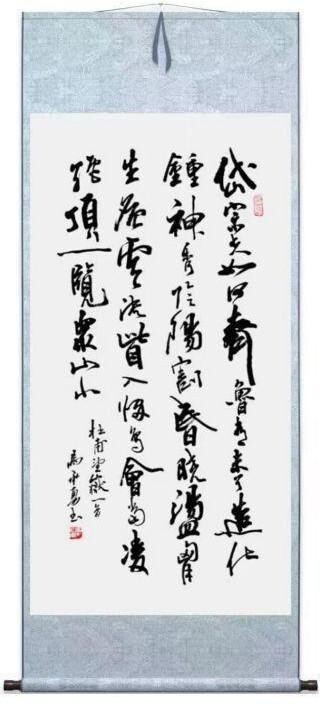 岱宗夫如何齊魯青未了造化
鍾神秀陰陽割昏曉盪胸
生層雲決眥入歸鳥會當凌
絶頂一覽衆山小
杜甫望嶽一首
馬 書